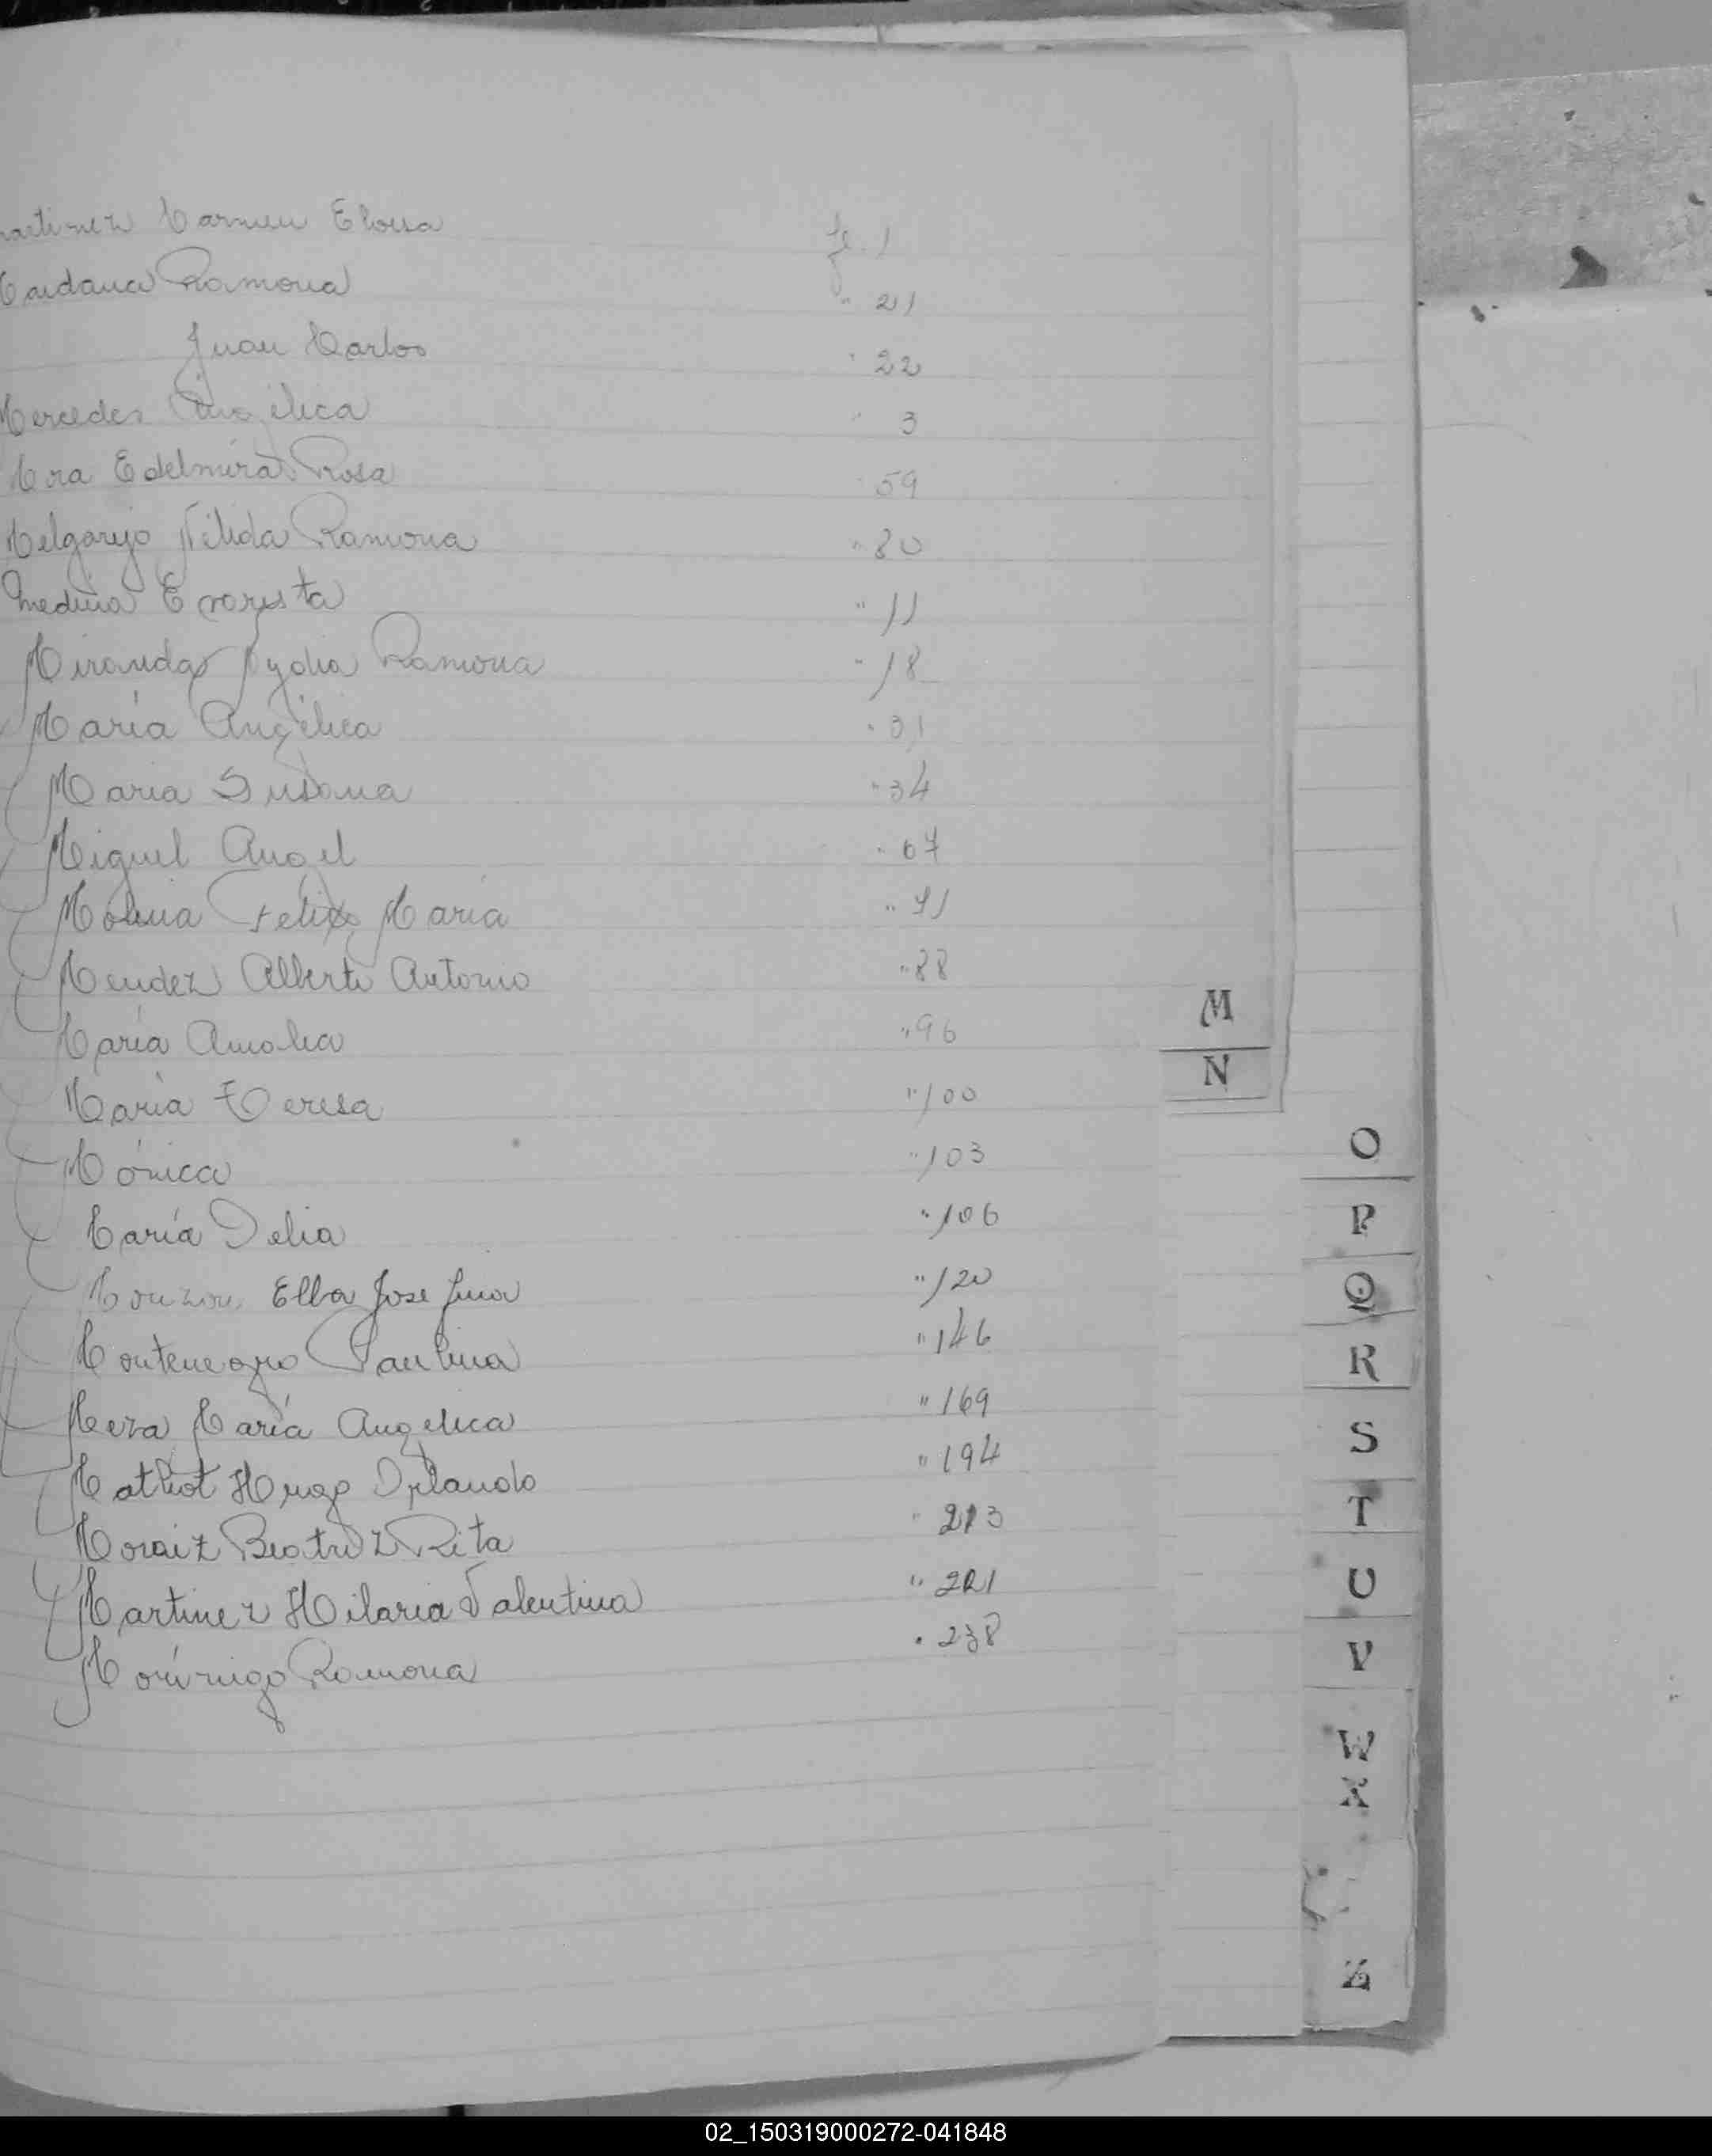 Martinez Carmen Eloisa fs. 1
Maidana Ramona " 21
Juan Carlos " 22
Mercedes Angélica " 3
Mra Edelmira Rosa " 59
Melgarejo Nélida Ramona " 80
Medina Evarista " 11
Miranda Lydia Ramona " 18
María Angélica " 31
María Susana " 34
Miguel Angel " 67
Molina Felix María " 71
Mendez Alberto Antonio " 88
María Amalia " 96
M
María Teresa " 100
N
Mónica " 103
O
María Delia " 106
P
Monzon Elba Josefina " 120
Q
Montenegro Paulina " 146
R
Meza María Angelica " 169
S
Mathot Hugo Orlando " 194
T
Moraiz Beatriz Rita " 213
U
Martinez Hilaria Valentina " 221
V
Morínigo Ramona " 238
W
X
Z
02_150319000272-041848